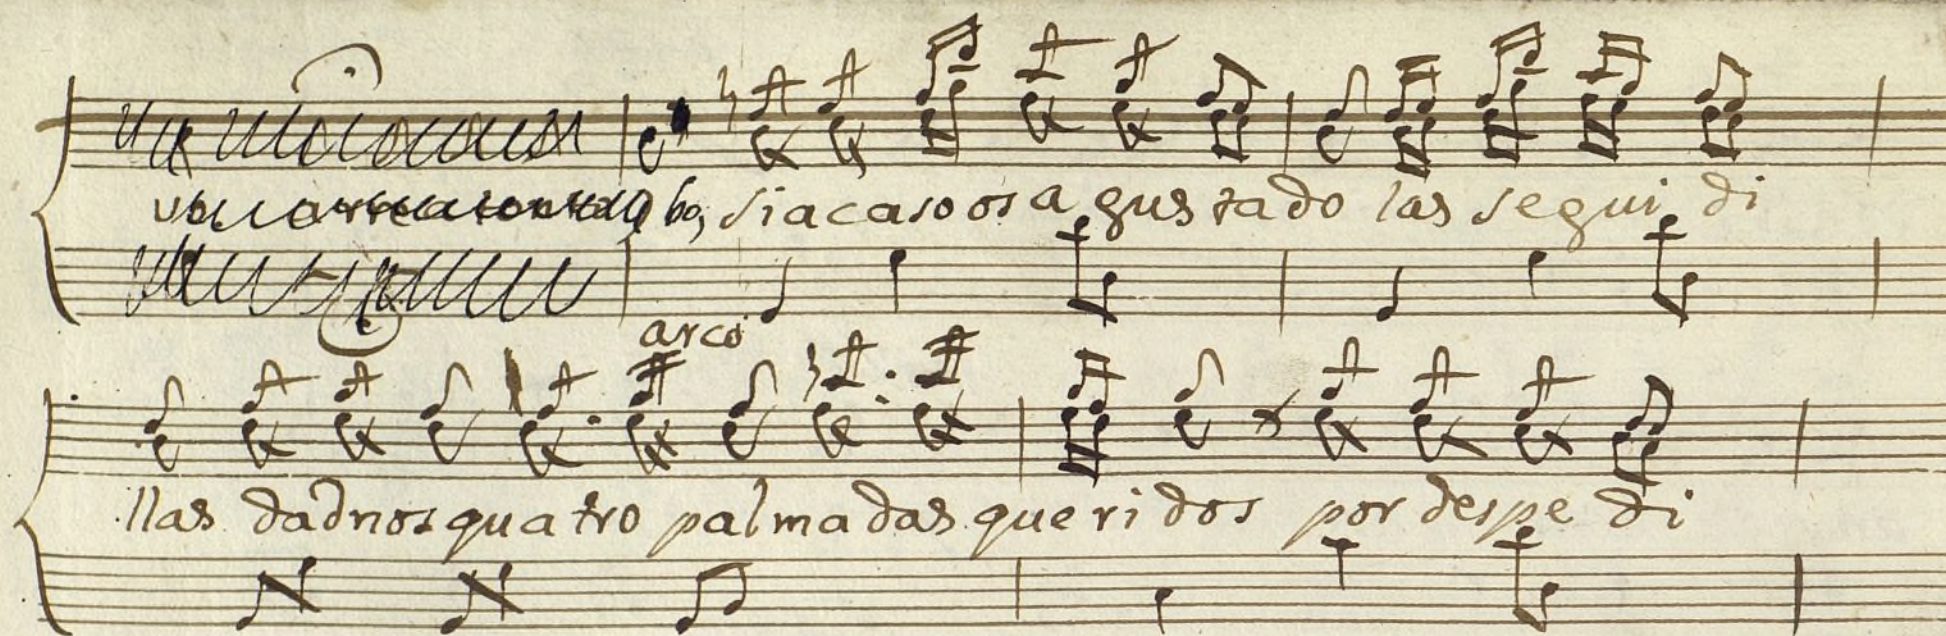 bo, si acaso os a gus ta do las se gui di
arco
llas dadnos quatro palmadas que ri dos por des pe di